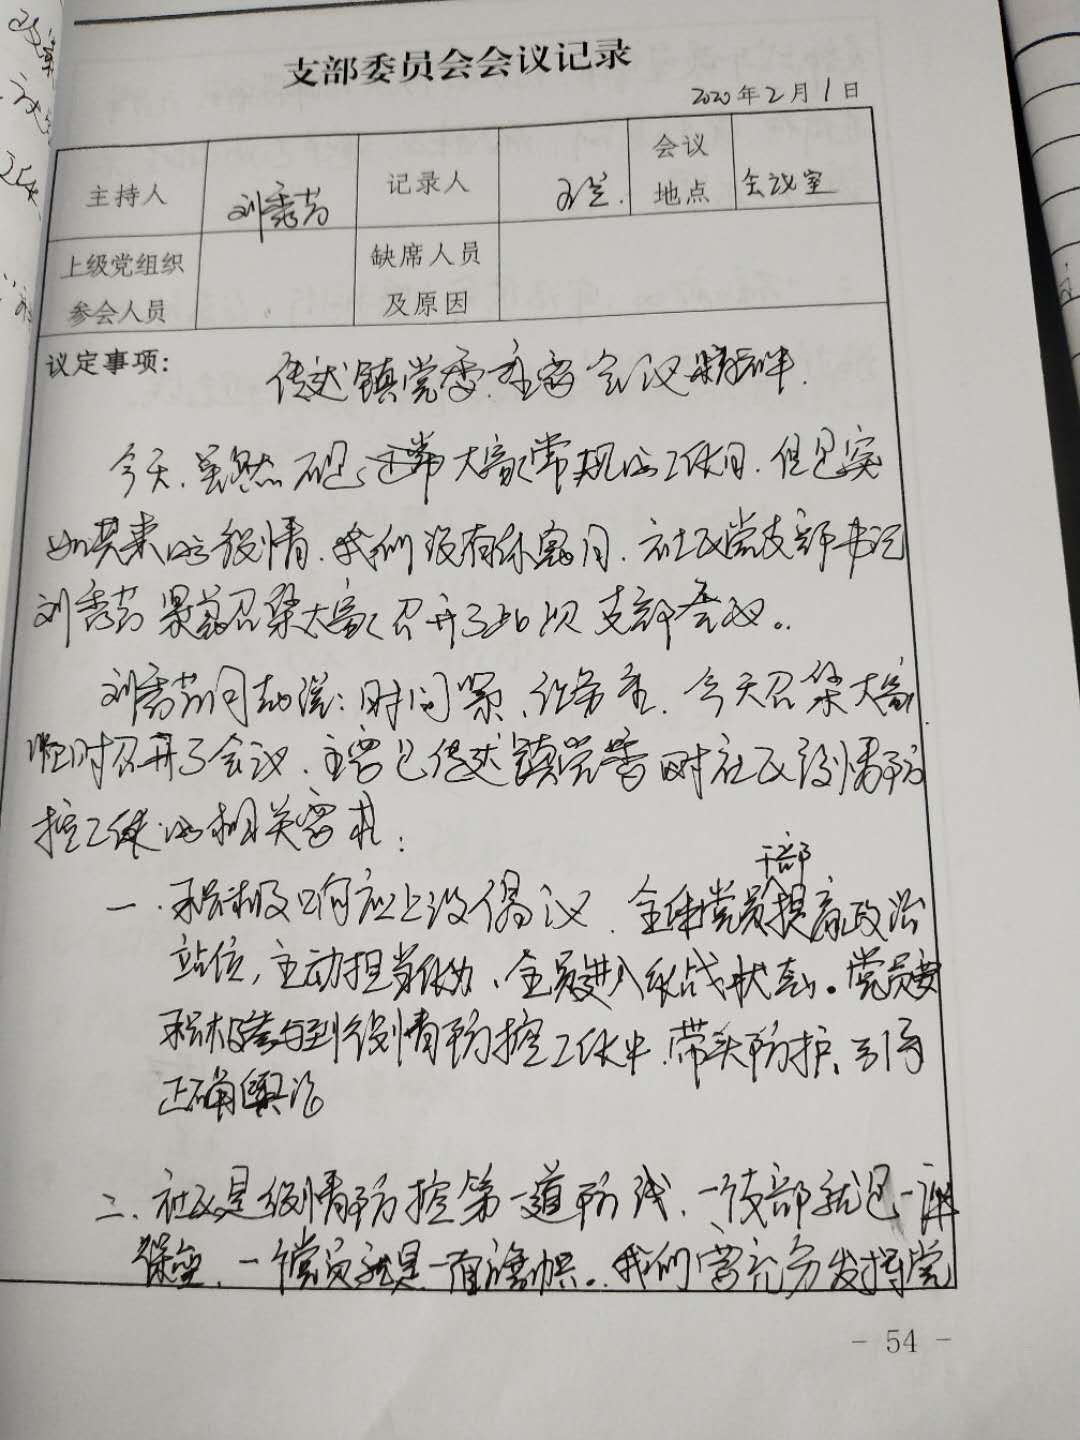 支部委员会会议记录
2020年2月1日
主持人 刘秀芳 记录人 会议地点 会议室
上级党组织参会人员 缺席人员及原因
议定事项:
传达镇党委主要会议精神.
今天,虽然不是正常大家常规的工作日,但是突
如其来的疫情,我们没有休息日,社区党支部书记
刘秀芳紧急召集大家召开了此次支部会议。
刘秀芳同志说:时间紧,任务重,今天召集大家
临时召开了会议,主要是传达镇党委对社区疫情防
控工作的相关要求:
一、积极响应上级倡议,全体党员干部提高政治
站位,主动担当作为,全员进入作战状态。党员要
积极参与到疫情防控工作中,带头防护,引导
正确舆论
二、社区是疫情防控第一道防线,一个支部就是一座
堡垒,一个党员就是一面旗帜。我们要充分发挥党
- 54 -